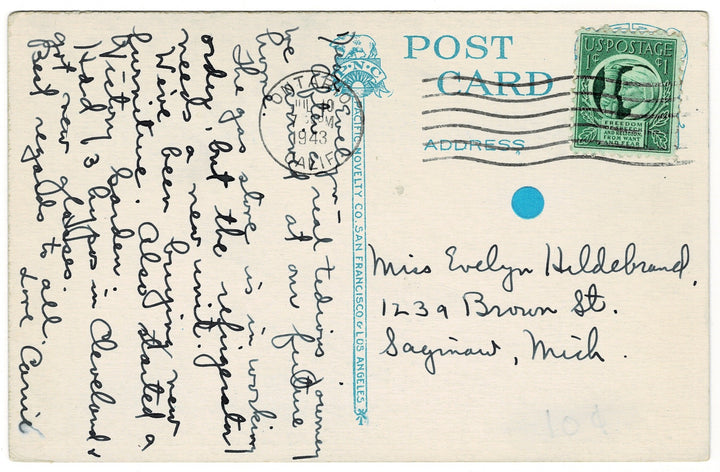 POST
CARD
ADDRESS
U.S. POSTAGE
1¢ ¢1
FREEDOM
OF SPEECH
AND RELIGION,
FROM WANT
AND FEAR
ONTARIO
1943
CALIF.
P·N·C
PACIFIC NOVELTY CO. SAN FRANCISCO & LOS ANGELES
real tedious journey
we arrived at our future
home.
The gas stove is in working
order, but the refrigerator
needs a new unit.
We've been buying new
furniture. Also started a
Victory Garden.
Had 3 hypos in Cleveland &
got new glasses.
Best regards to all.
Love Carrie
Miss Evelyn Hildebrand,
1239 Brown St.
Saginaw, Mich.
10¢